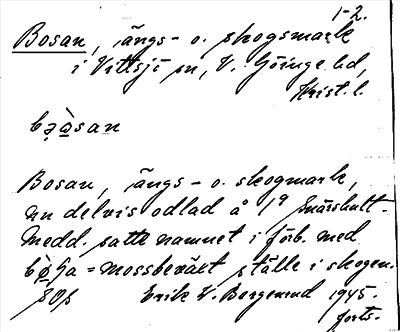 1-2.
Bosan, ängs- o. skogsmark
i Vittsjö sn, V. Göinge hd,
Krist. l.
bǫ̀san
Bosan, ängs- o. skogmark,
nu delvis odlad å 1⁹ Snärshult.
Medd. satte namnet i förb. med
bo̱sa = mossbeväxt ställe i skogen.
Erik W. Bergerund 1945.
forts.